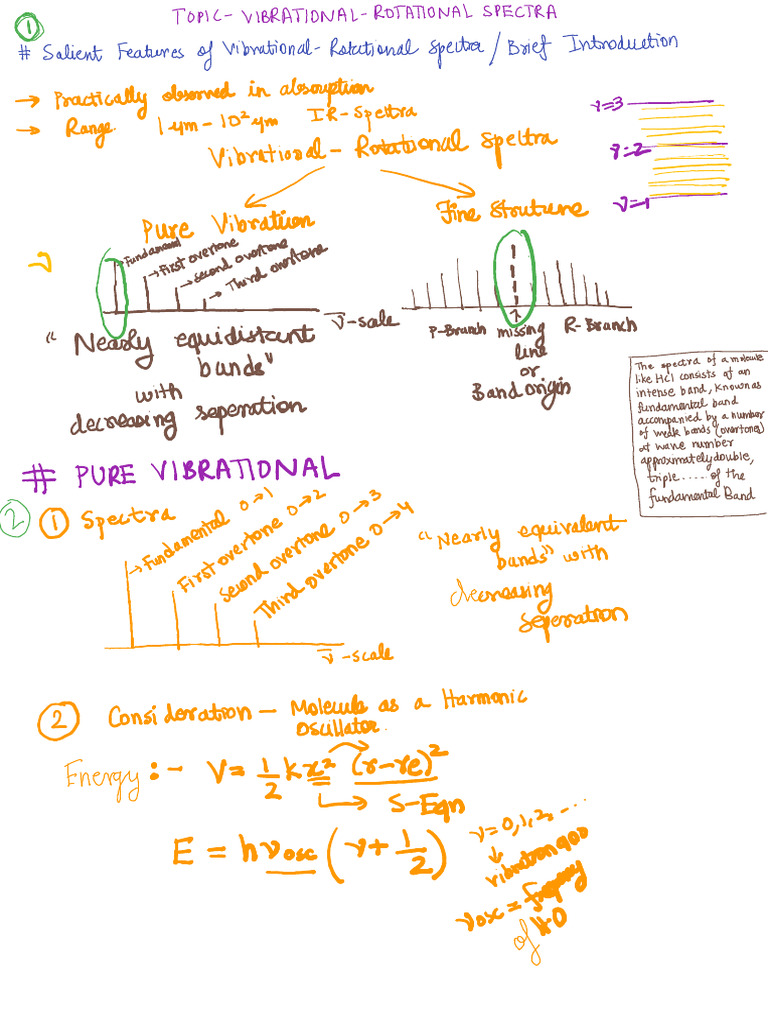 ①
TOPIC- VIBRATIONAL-ROTATIONAL SPECTRA
# Salient Features of Vibrational-Rotational Spectra / Brief Introduction
→ Practically observed in absorption
→ Range 1 μm - 10² μm IR-Spectra
Vibrational - Rotational Spectra
v=3
v=2
v=1
Pure Vibration
Fine Struture
Fundamental
First overtone
second overtone
Third overtone
ν̅-scale
"Nearly equidistant
bands"
with
decreasing seperation
P-Branch missing R-Branch
line
or
Band origin
The spectra of a molecule
like HCl consists of an
intense band, known as
fundamental band
accompanied by a number
of weak bands (overtones)
at wave number
approximately double,
triple..... of the
fundamental Band
# PURE VIBRATIONAL
②
① Spectra
Fundamental 0→1
First overtone 0→2
Second overtone 0→3
Third overtone 0→4
ν̅-scale
"Nearly equivalent
bands" with
decreasing
seperation
② Consideration - Molecule as a Harmonic
Oscillator.
Energy :- V = 1/2 k x² (r-re)²
→ S-Eqn
E = hνosc (v + 1/2)
v=0,1,2, ...
vibration
νosc = frequency
of H.O